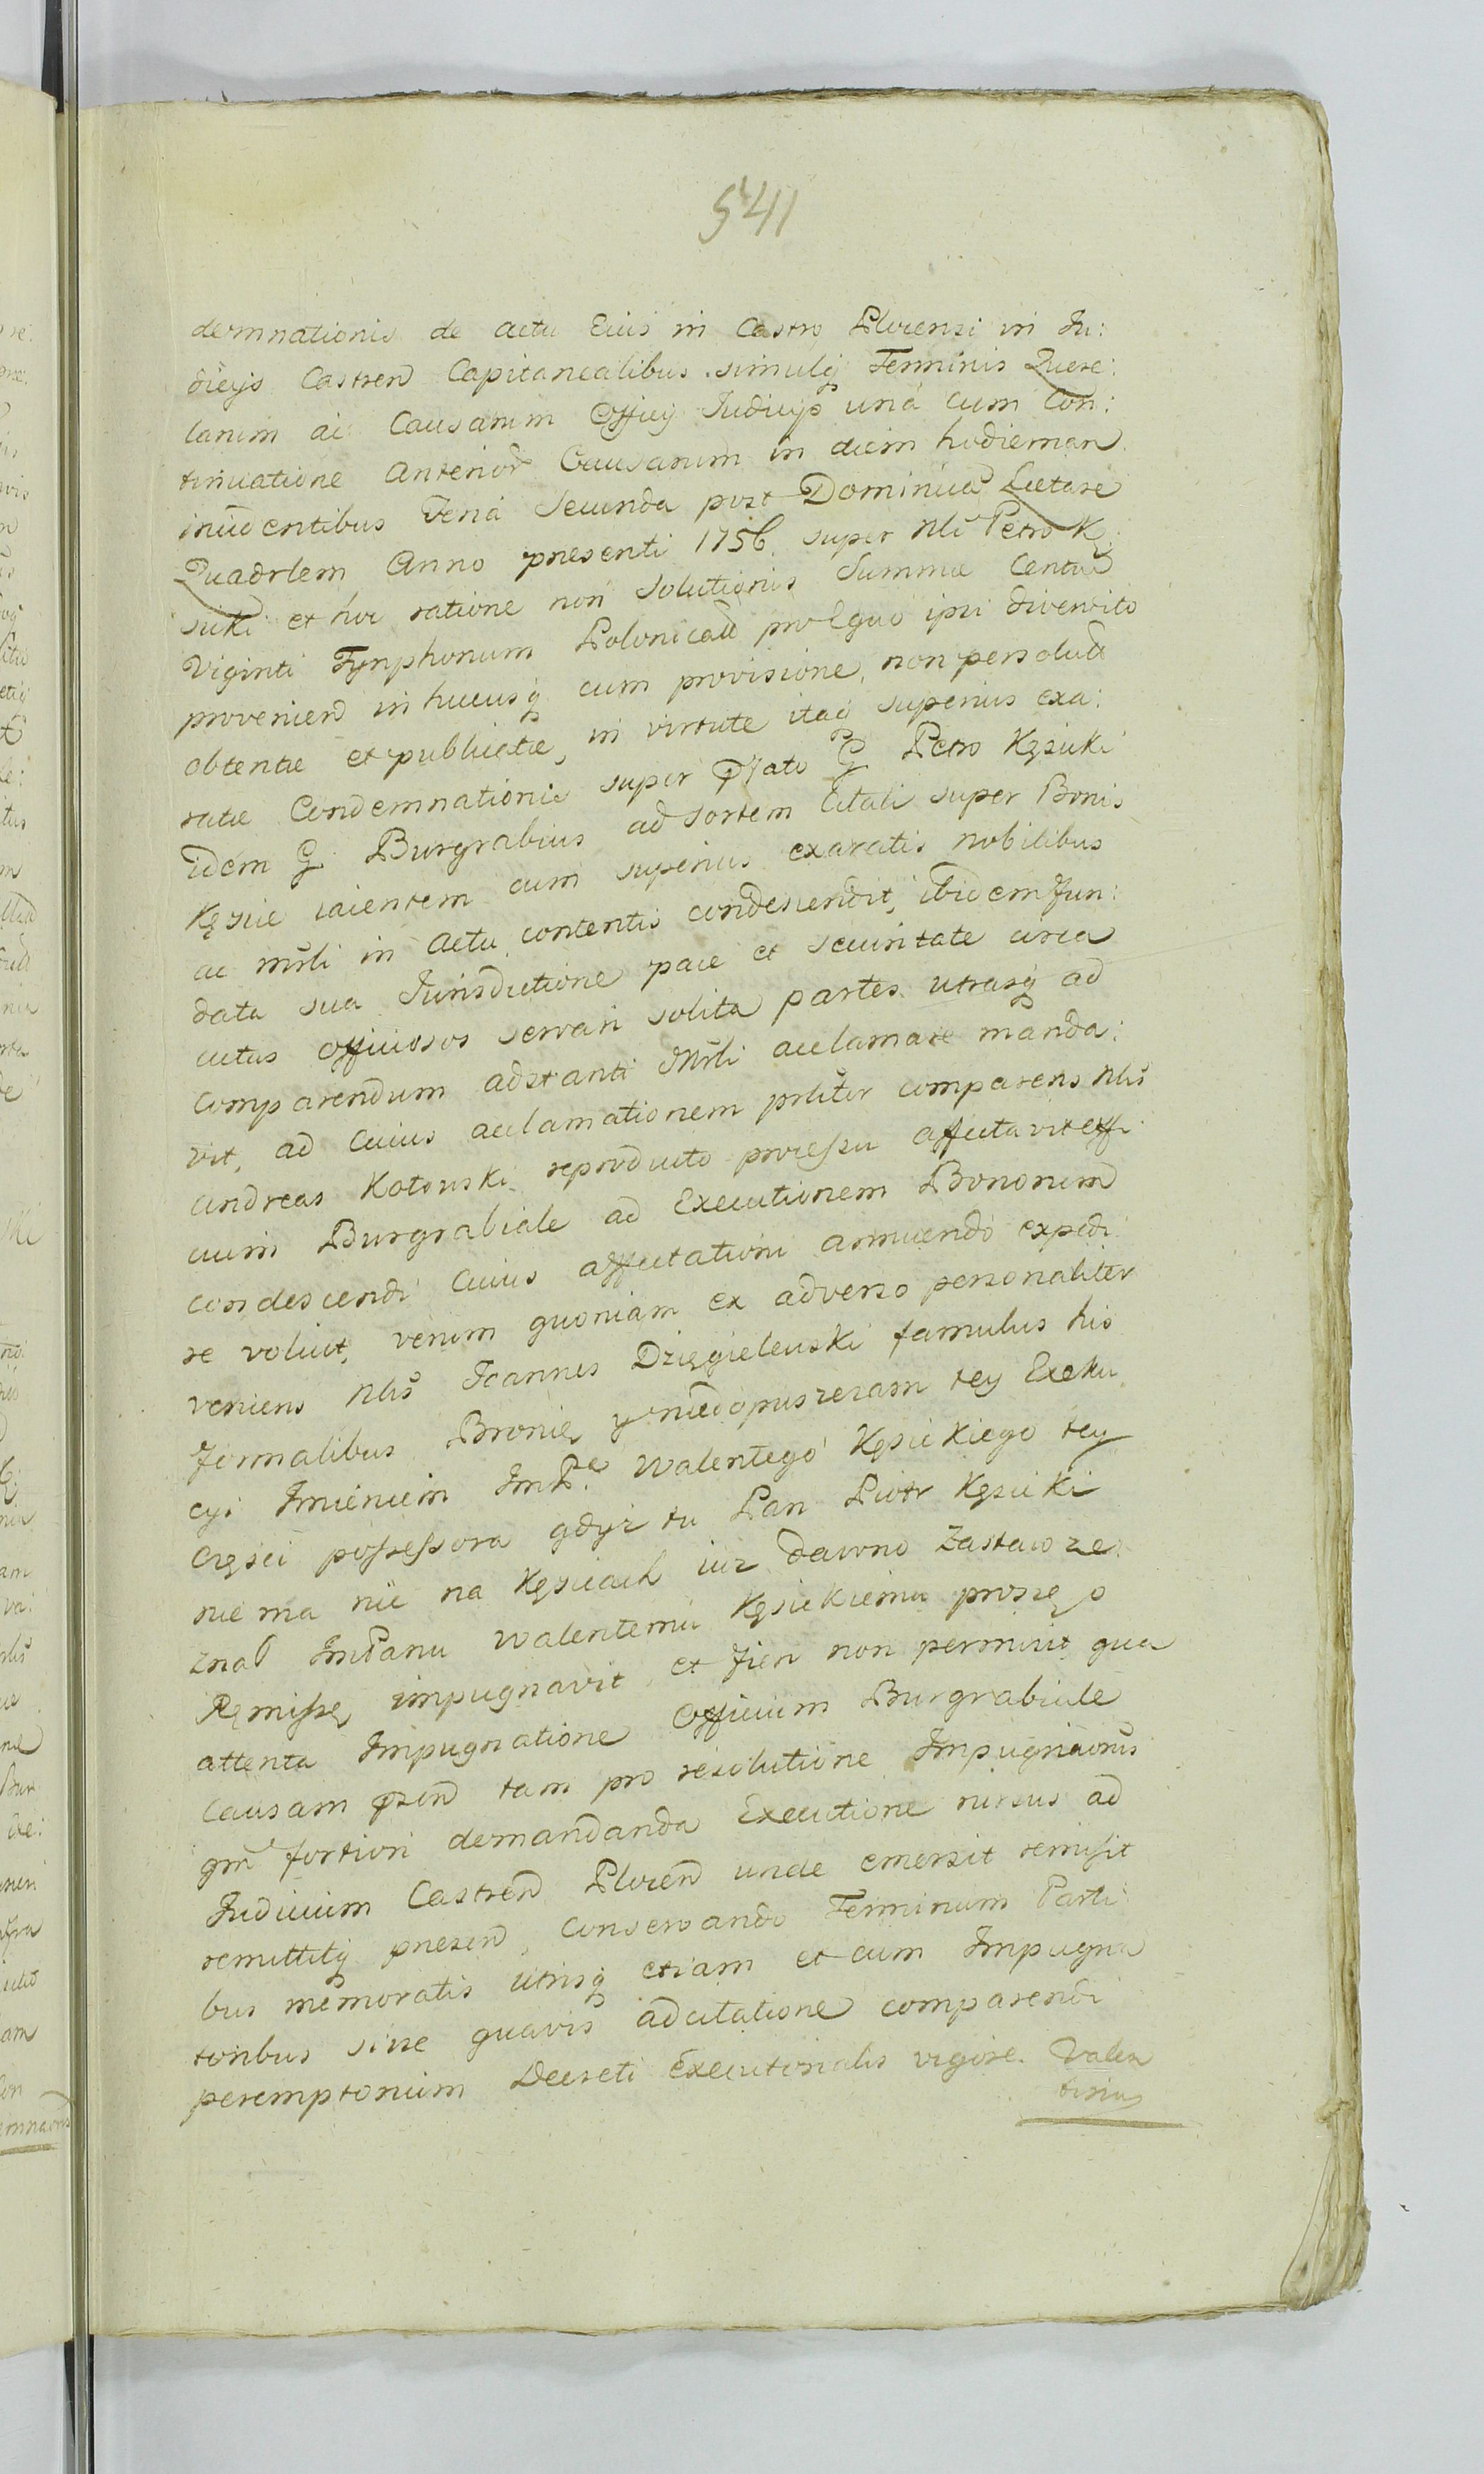 541
demnationis de actu Eius in Castro Plocensi in Ju:
dicijs Castren Capitanealibus simulq Terminis Quere:
larum ac Causarum Officij Judicijs unà cum Con:
tinuatione anterior Causarum in diem hodiernam
incidentibus Feria Secunda post Dominica Laetare
Quadrlem Anno presenti 1756 super Nli Petro Kę
sicki et hoc ratione non Solutionis Summae Centu
Viginti Tynphonum Polonicall pro Equo ipsi divendito
provenien in hucusq cum provisione, non persolutt
obtentae et publicatae, in virtute itaq superius exa:
ratae Condemnationis super Pfato G Petro Kęsicki
idem G Burgrabius ad sortem Citati super Bonis
Kęsice iacentem cum superius exaratis nobilibus
ac mrli in actu contentis condescendit, ibidem fun:
data sua Jurisdictione pace et securitate circa
actus officiosos servari solita partes utrasq ad
comparendum adstanti Mrli acclamare manda:
vit, ad cuius acclamationem prliter comparens Nlis
Andreas Kotowski reproducto processu affectavit offi
cium Burgrabiale ad Executionem Bonorum
condescendi cuius affectationi annuendo expedi
re voluit, verum quoniam ex adverso personaliter
veniens Nlis Joannes Dzięgielewski famulus his
formalibus Bronię y niedopuszczam tey Exeku
cyi Imieniem ImP. Walentego Kęsickiego tey
Częsci possessora gdyż tu Pan Piotr Kęsicki
nie ma nic na Kęsicach iuż dawno Zastaw ze
znał ImPanu Walentemu Kęsickiemu proszę o
Remissę impugnavit, et fieri non permisit qua
attenta Impugnatione Officium Burgrabiale
Causam psen tam pro resolutione Impugnaonis
qm fortiori demandanda Executione rursus ad
Judicium Castren Plocen unde emersit remisit
remittitq presen, conservando Terminum Parti
bus memoratis utrisq etiam et cum Impugna
toribus sine quavis adcitatione comparendi
peremptorium Decreti Executorialis vigore. Valen
tinus